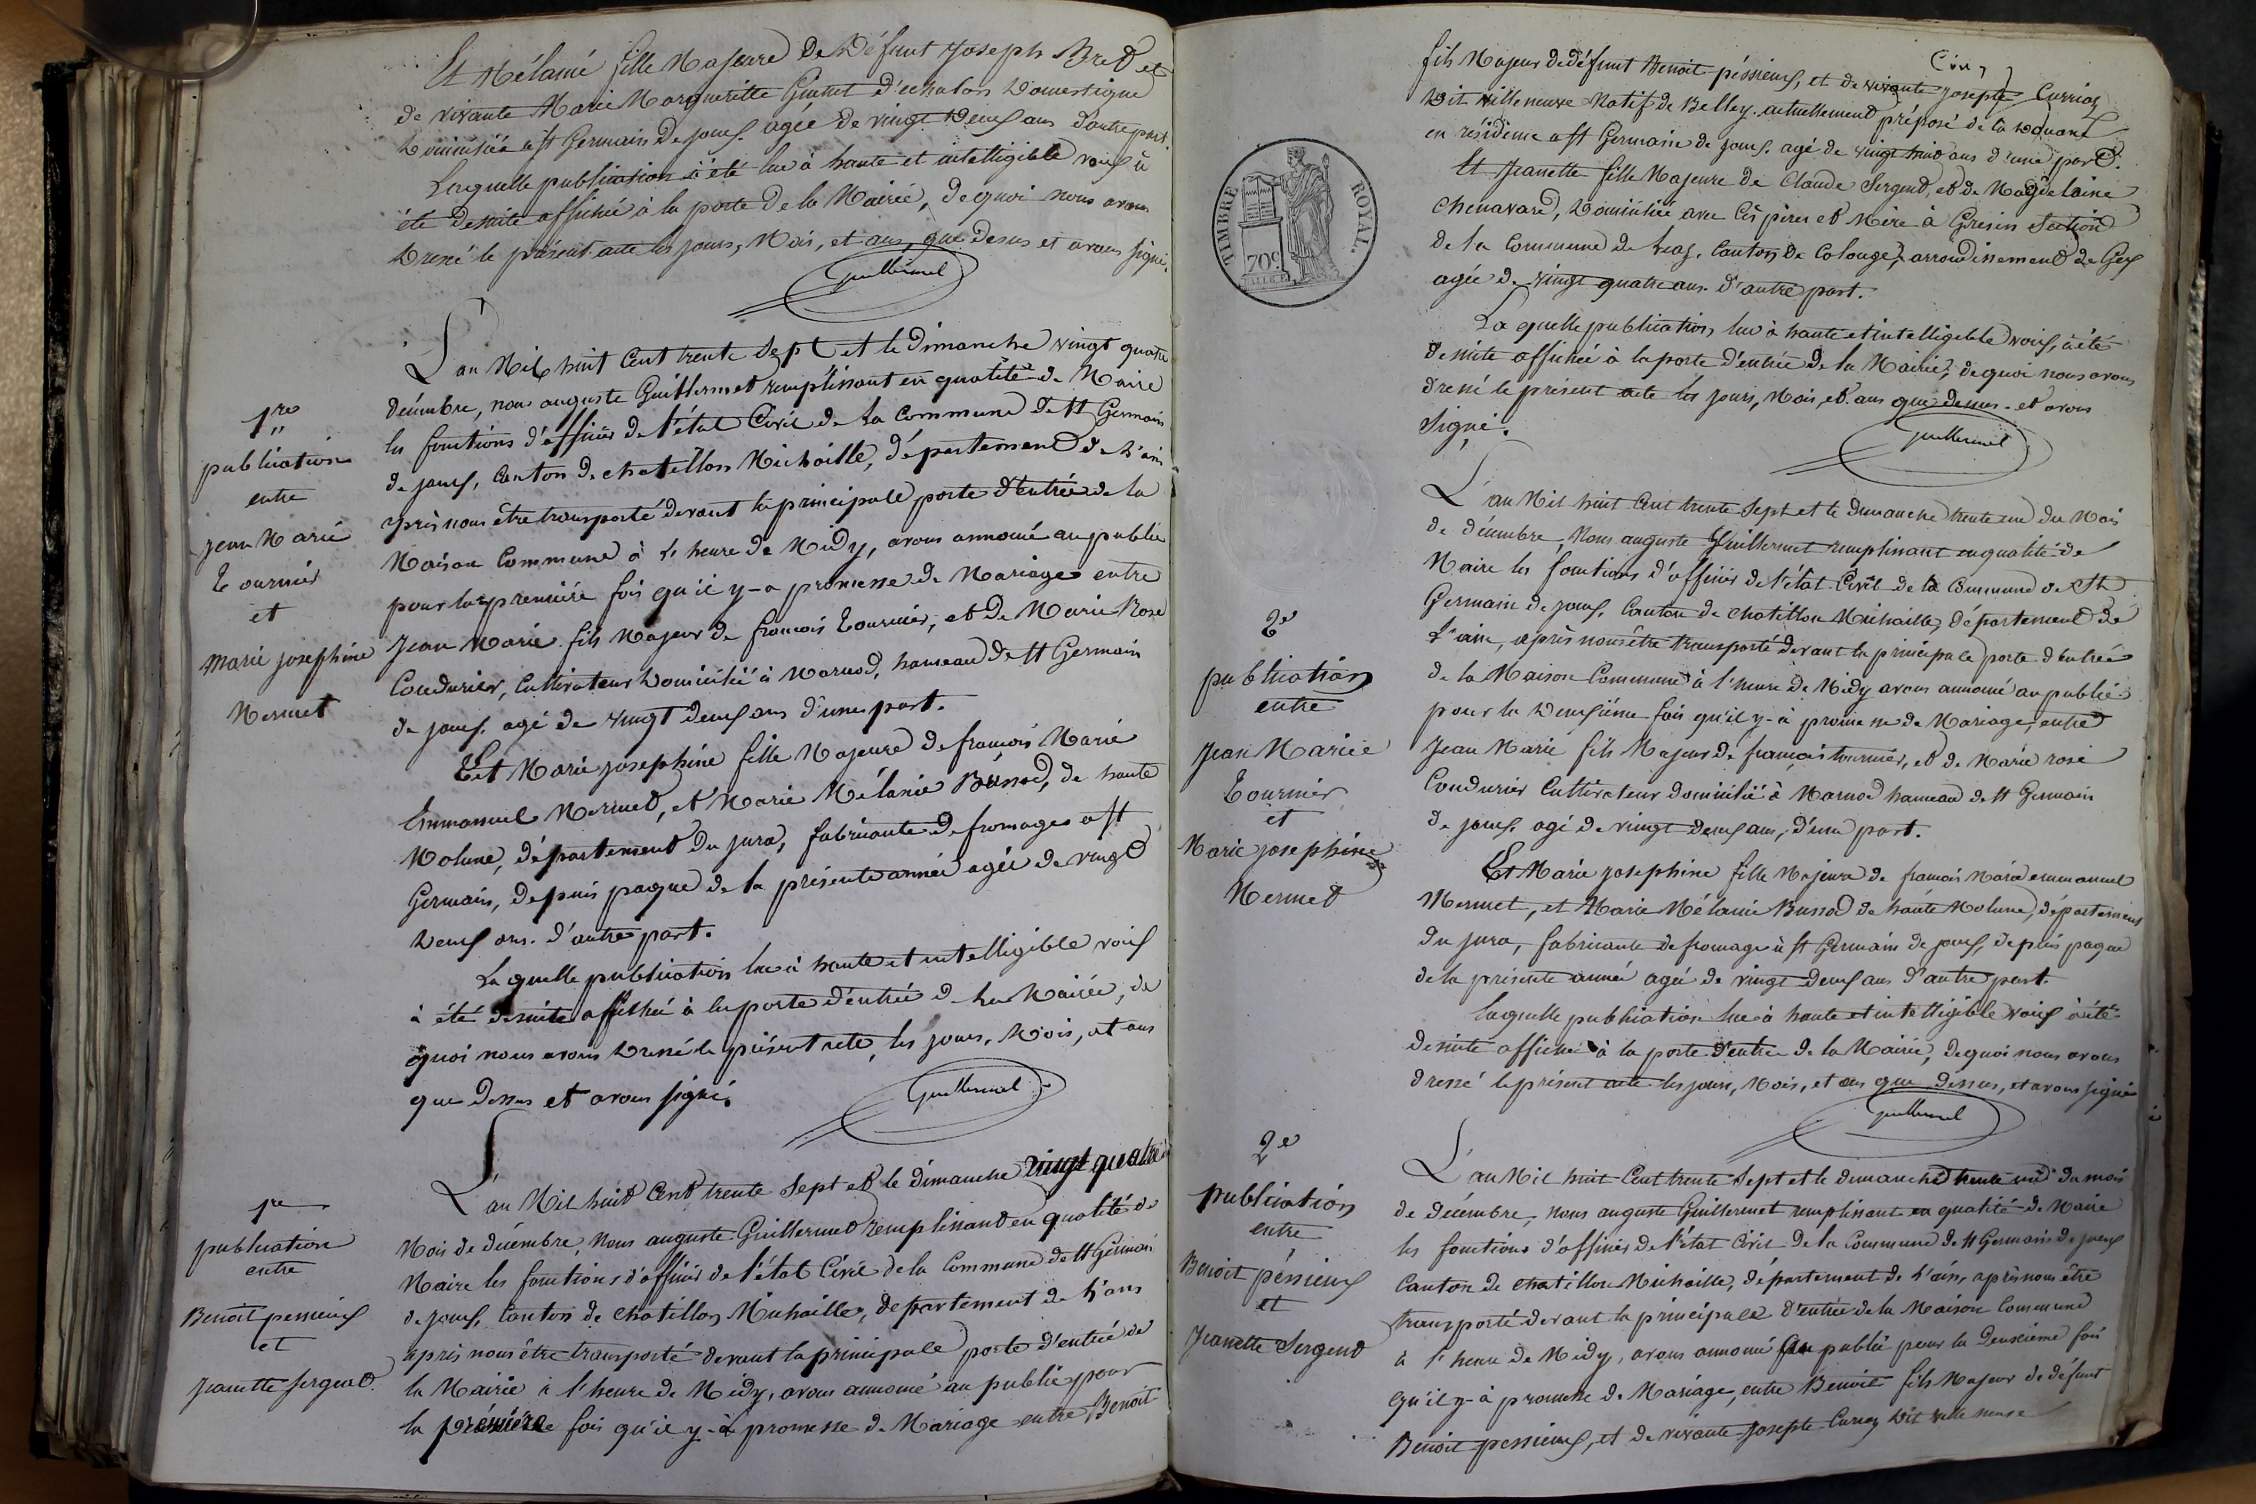 Et Mélanié fille Majeure de défunt Joseph Bred et
de vivante Marie Marguerite d'echalon Domestique
Domiciliée à St Germain de joux. agée de vingt deux ans d'autre part.
Laquelle publication à été lue à haute et intelligible voix à
été desuite affichée à la porte de la Mairie, de quoi nous avons
Dressé le présent acte les jours, Mois, et ans, que desus et avons signé.
Guillermet
L'an Mil huit Cent trente Sept et le Dimanche vingt quatre
décembre, nous auguste Guillermet remplissant en qualité de Maire
les fonctions d'officier de l'état Civil de la Commune de St Germain
de joux, Canton de chatillon Michaille, département de L'ain
après nous être transporté devant la principale porte d'entrée de la
Maison Commune à L'heure de Midy, avons annoncé au public
pour la première fois qu'il y-a promesse de Mariage entre
Jean Marie fils Majeur de françois Tournier, et de Marie Rose
Coudurier, Cultivateur Domicilié à Marnod, hameau de St Germain
de joux. agé de vingt deux ans d'une part.
Et Marie josephine fille Majeure de françois Marie
Emmanuel Mermet, et Marie Mélanie Bussod, de haute
Molune, département du jura, fabricante de fromages à St
Germain, depuis paque de la présente année agée de vingt
Deux ans. d'autre part.
La quelle publication lue à haute et intelligible voix
à été desuite affichée à la porte d'entrée de la Mairie, de
quoi nous avons Dressé le présent acte, les jours, Mois, et ans
que dessus et avons signé.
Guillermet
L'an Mil huit Cent trente Sept et le dimanche vingt quatre
Mois de décembre, Nous auguste Guillermet remplissant en qualité de
Maire les fonctions d'officier de l'état Civil de la Commune de St Germain
de joux, Canton de chatillon Michaille, département de L'ain
après nous être transporté devant la principale porte d'entrée de
la Mairie à l'heure de Midy, avons annoncé au public pour
la première fois qu'il y-à promesse de Mariage entre Benoit
1re
publication
entre
jean Marie
Tournier
et
Marie josephine
Mermet
1re
publication
entre
Benoit pessieux
et
jeanette sergend.
fils Majeur de défunt Benoit péssieux, et de vivante josepte Curriaz
Dit villeneuve Natif de Belley. actuellement préposé de la Douane
en résidence à St Germain de joux. agé de vingt huit ans d'une part.
Et Jeanette fille Majeure de Claude Sergend, et de Magdelaine
Chenavard, Domiciliée avec Cès père et Mère à Gresin Section
de la Commune de Leaz, Canton de Colonge, arrondissement de Gex
agée de vingt quatre ans. d'autre part.
La quelle publication lue à haute et intelligible voix, à été
desuite affichée à la porte d'entrée de la Mairie, de quoi nous avons
dressé le présent acte les jours, Mois, et ans que dessus. et avons
signé.
Guillermet
TIMBRE ROYAL.
70c
L'an Mil huit Cent trente Sept et le dimanche trente un du Mois
de décembre, Nous auguste Guillermet remplissant en qualité de
Maire les fonctions d'officier de l'état Civil de la Commune de St
Germain de joux, Canton de chatillon Michaille, département de
L'ain, après nous être transporté devant la principale porte d'entrée
de la Maison Commune à l'heure de Midy avons annoncé au public
pour la Deuxième fois qu'il y-à promesse de Mariage, entre
Jean Marie fils Majeur de françois tournier, et de Marie rose
Coudurier Cultivateur domicilié à Marnod hameau de St Germain
de joux. agé de vingt deux ans, d'une part.
Et Marie josephine fille Majeure de francois Marie emmanuel
Mermet, et Marie Mélanie Bussod de haute Molune, département
du jura, fabricante de fromage à St Germain de joux, depuis paque
de la présente année agée de vingt deux ans d'autre part.
Laquelle publication lue à haute et intelligible voix à été
desuite affichée à la porte d'entrée de la Mairie, de quoi nous avons
dressé le présent acte les jours, Mois, et ans que dessus, et avons signé
Guillermet
L'an Mil huit Cent trente Sept et le dimanche trente un du mois
de décembre, nous auguste Guillermet remplissant en qualité de Maire
les fonctions d'officier de l'état Civil de la Commune de St Germain de joux
Canton de chatillon Michaille, département de L'ain, après nous être
transporté devant la principale d'entrée de la Maison Commune
à l'heure de Midy, avons annoncé au public pour la Deuxième fois
qu'il y-à promesse de Mariage, entre Benoit fils Majeur de défunt
Benoit pessieux, et de vivante Josepte Curiaz Dit Ville neuve
2e
publication
entre
Jean Mariee
Tournier
et
Marie josephine
Mermet
2e
publication
entre
Benoit péssieux
et
Jeanette Sergend